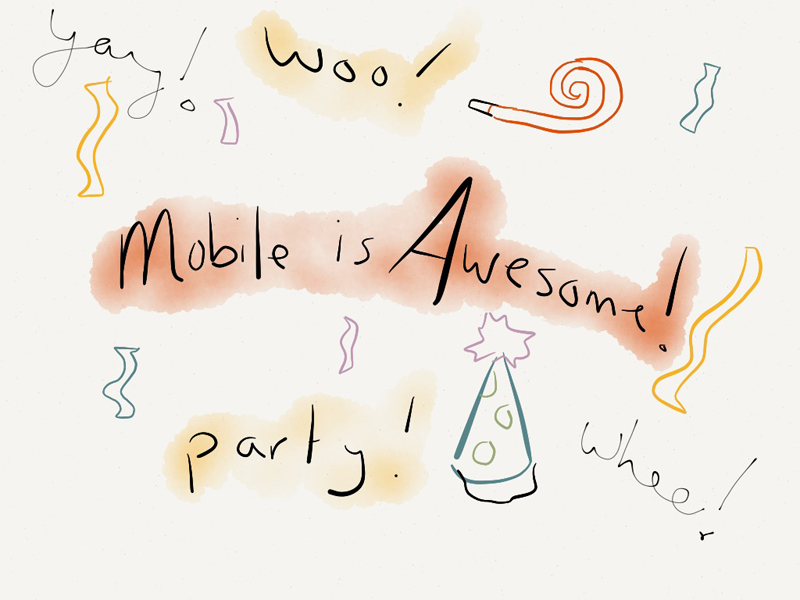 yay!
woo!
Mobile is Awesome!
party!
whee!